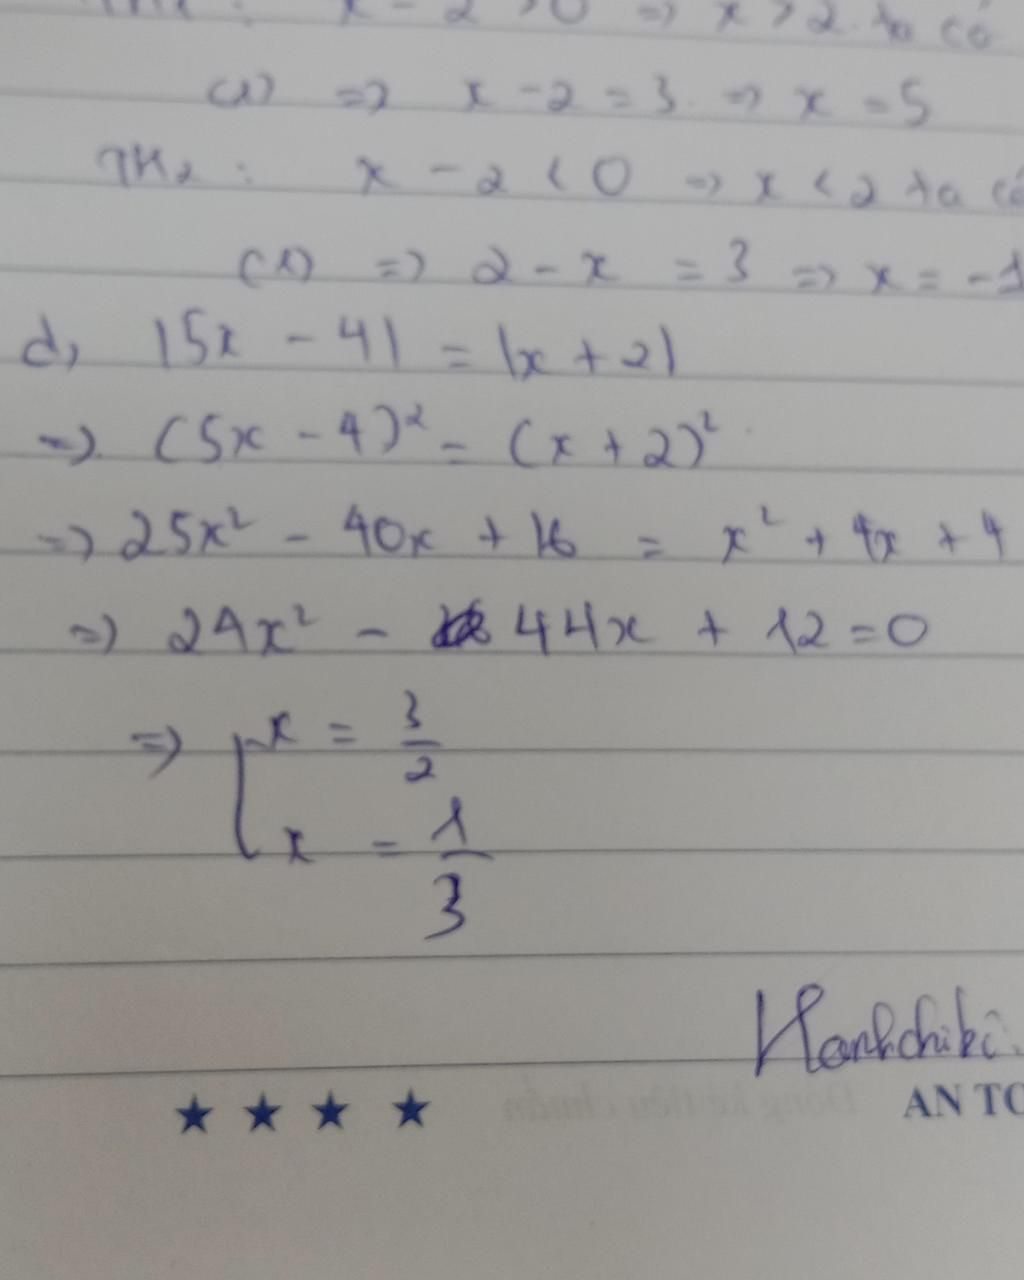 x - 2 > 0 => x > 2 ta có
(1) => x - 2 = 3 => x = 5
TH2 : x - 2 < 0 => x < 2 ta có
(1) => 2 - x = 3 => x = -1
d, |5x - 4| = |x + 2|
=> (5x - 4)² = (x + 2)²
=> 25x² - 40x + 16 = x² + 4x + 4
=> 24x² - 44x + 12 = 0
=> [ x = 3/2
x = 1/3
Hanhchiki
★ ★ ★ ★ AN TO